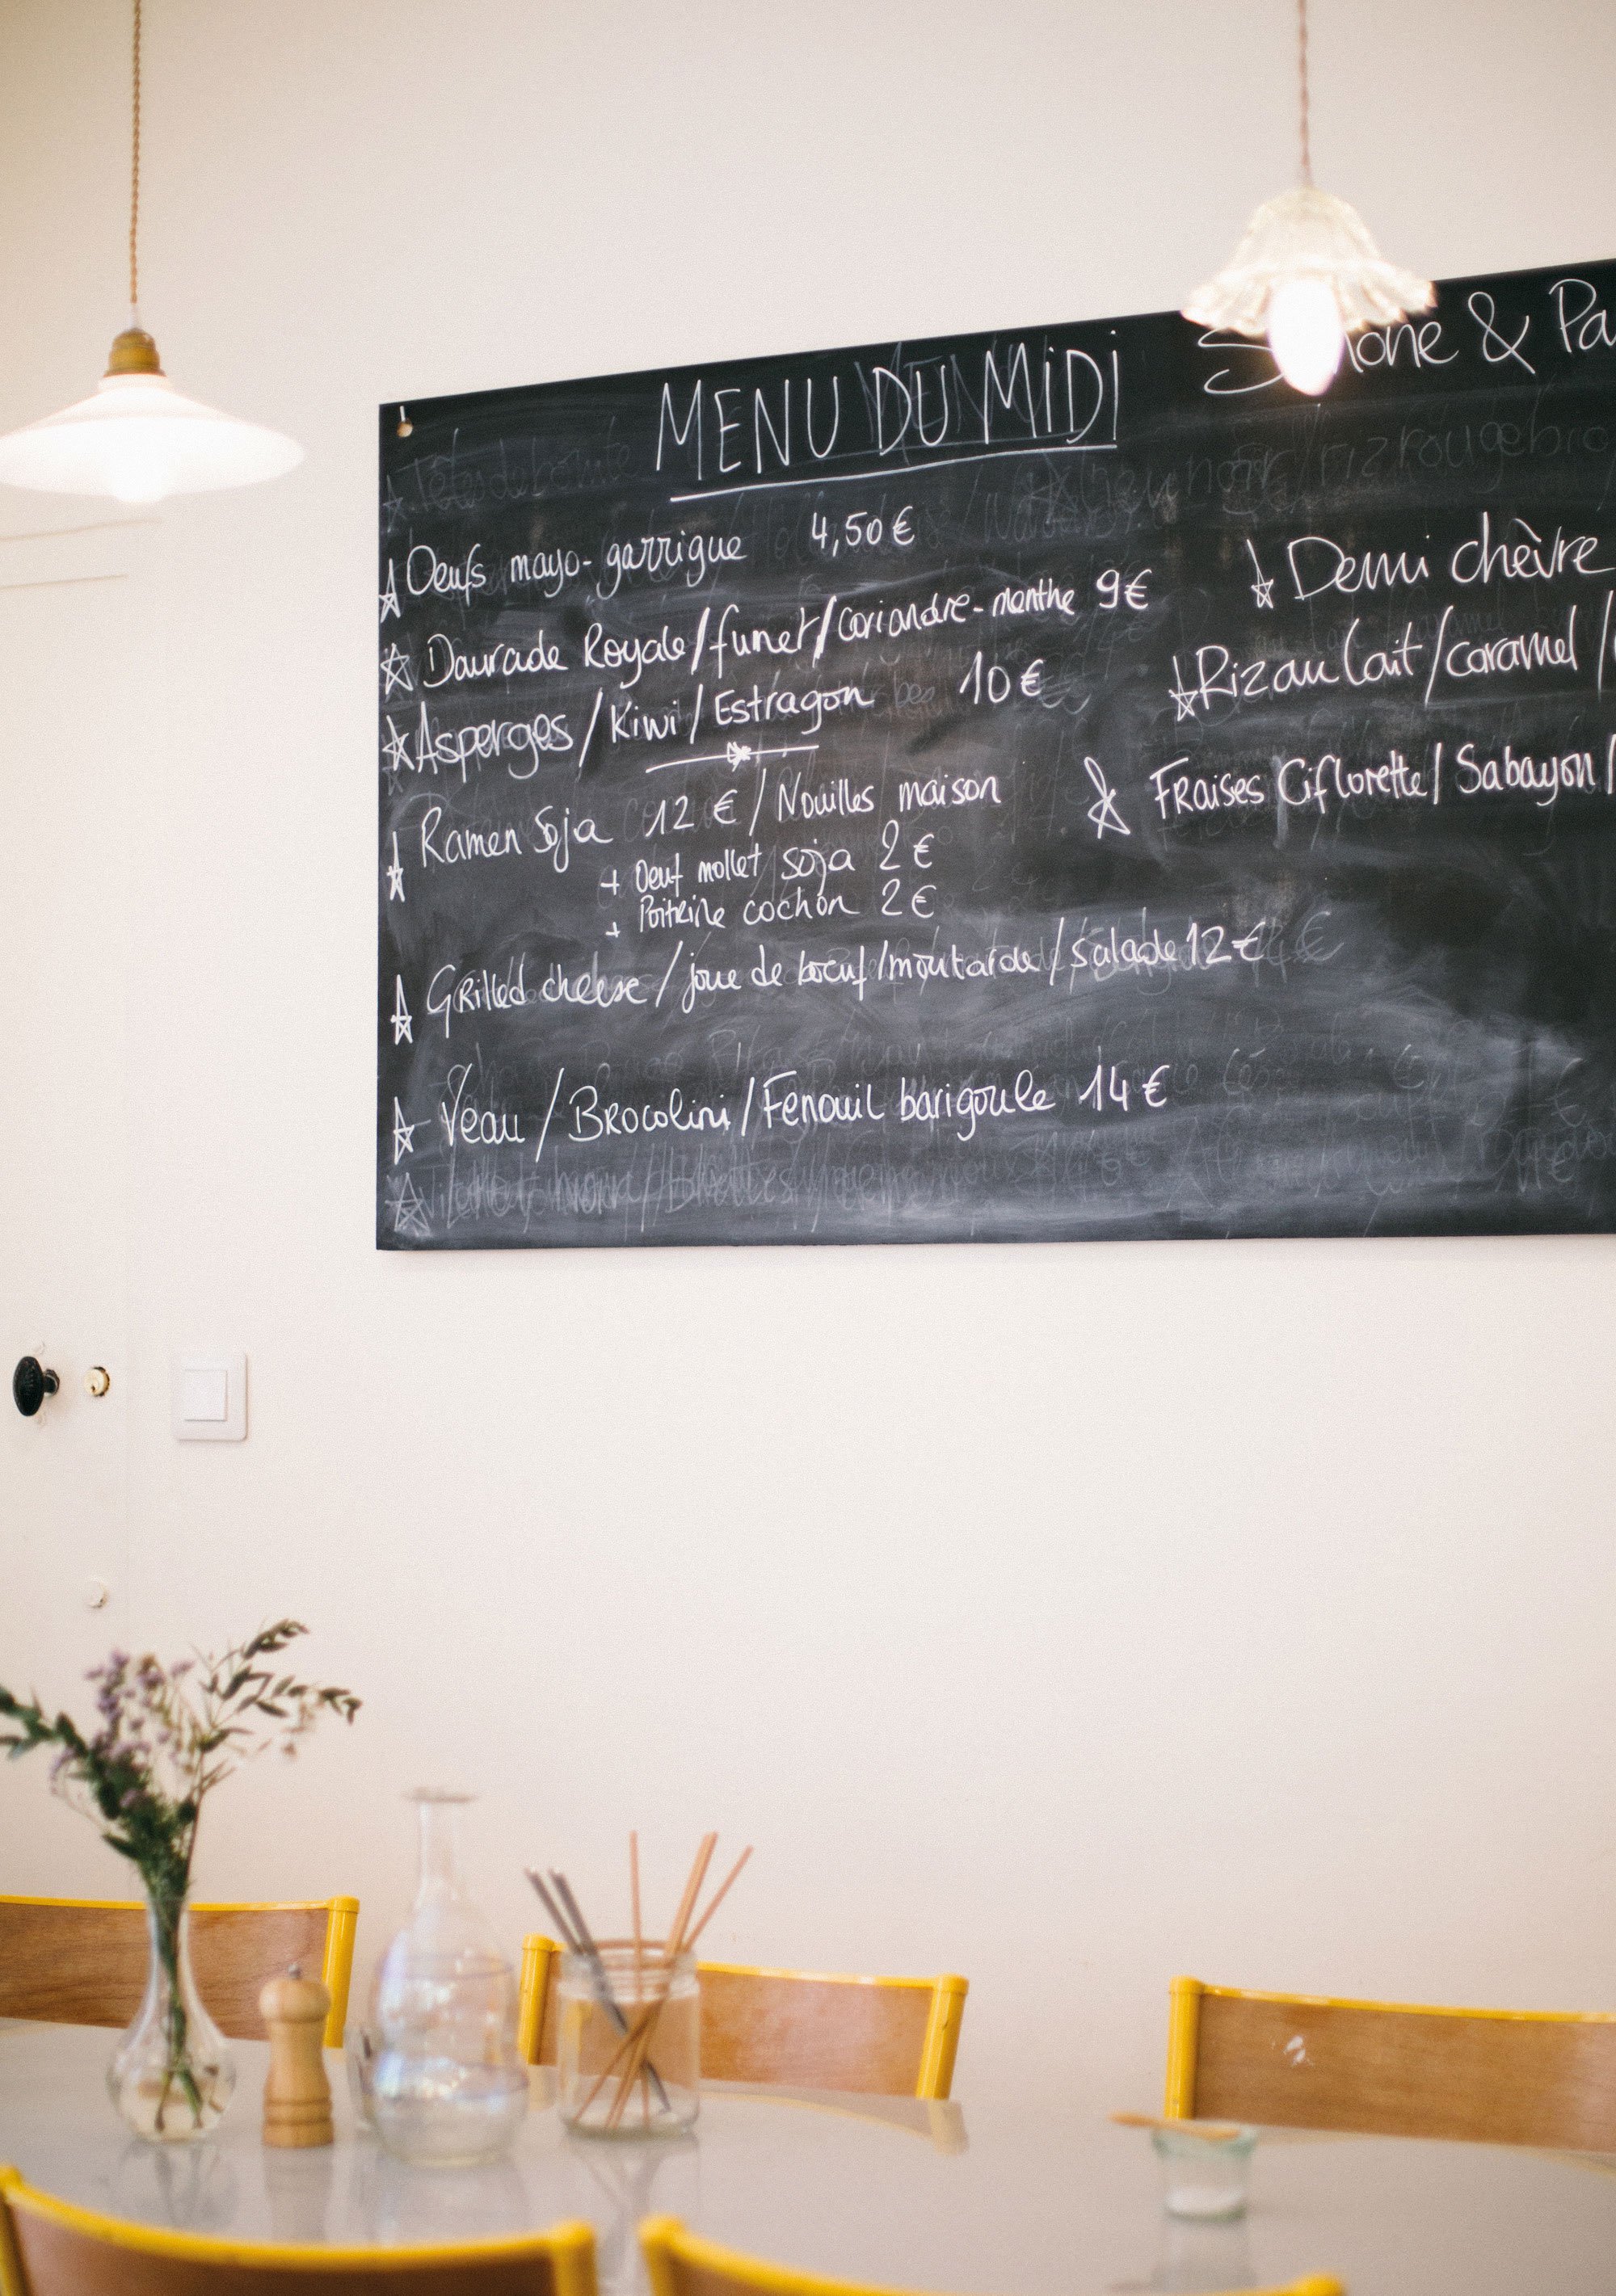 MENU DU MiDi
Oeufs mayo-garrigue 4,50€
Daurade Royale/fumet/coriandre-menthe 9€
Asperges/Kiwi/Estragon 10€
Ramen Soja 12€/Nouilles maison
+ Oeuf mollet soja 2€
+ Poitrine cochon 2€
Grilled cheese/joue de boeuf/moutarde/salade 12€
Veau/Brocolini/Fenouil barigoule 14€
&
Demi chèvre
Riz au lait/caramel/
Fraises Ciflorette/Sabayon/